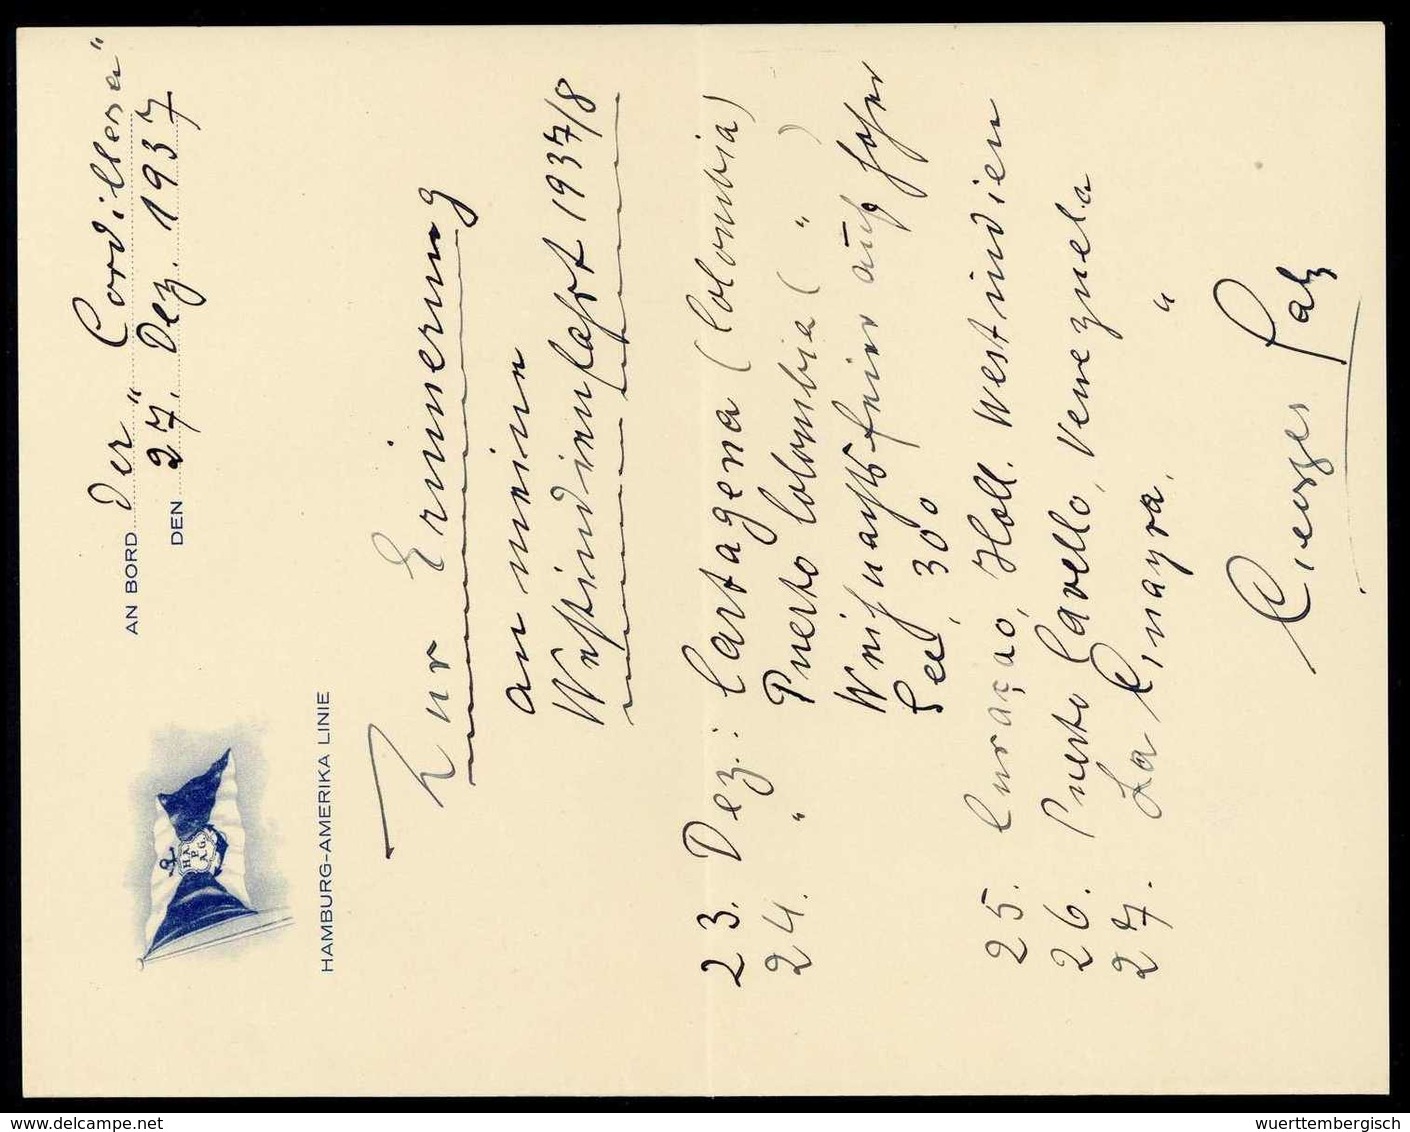 AN BORD der „Cordillera“
DEN 27. Dez. 1937
H. A.
P.
A. G.
HAMBURG-AMERIKA LINIE
Zur Erinnerung
an meine
Westindienfahrt 1937/8
23. Dez.: Cartagena (Colombia)
24. " Puerto Colombia ( " )
Weihnachtsfeier auf hoher
See, 30°
25. Curaçao, Holl. Westindien
26. Puerto Cavello, Venezuela
27. La Guayra, "
wuerttembergisch
www.delcampe.net